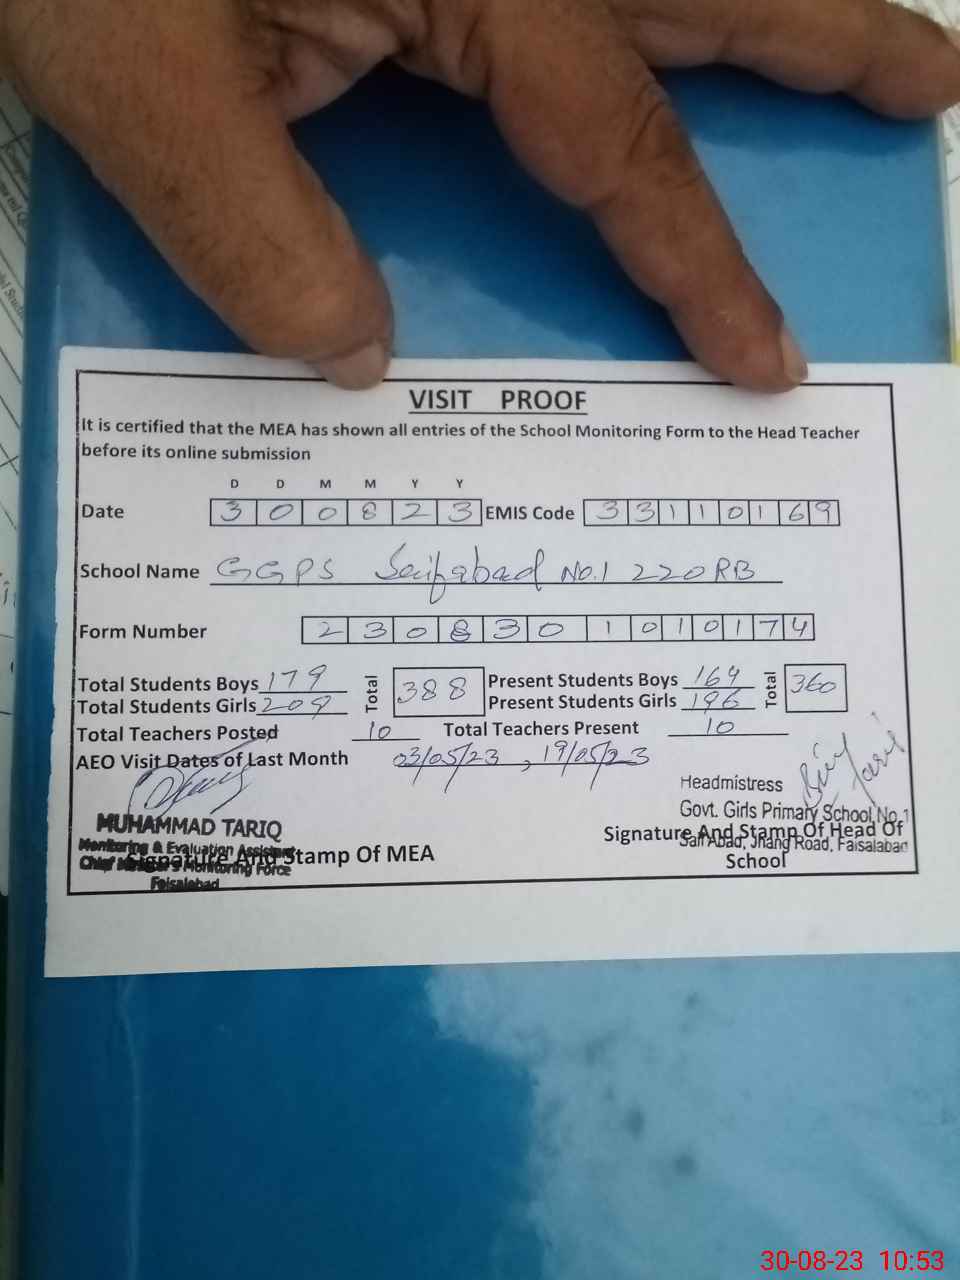 VISIT PROOF
It is certified that the MEA has shown all entries of the School Monitoring Form to the Head Teacher
before its online submission
D D M M Y Y
Date 3 0 0 8 2 3 EMIS Code 3 3 1 1 0 1 6 9
School Name GGPS Saifabad No.1 220 RB
Form Number 2 3 0 8 3 0 1 0 1 0 1 7 4
Total Students Boys 179 Total 388 Present Students Boys 164 Total 360
Total Students Girls 209 Present Students Girls 196
Total Teachers Posted 10 Total Teachers Present 10
AEO Visit Dates of Last Month 03/05/23, 19/05/23
Headmistress
Govt. Girls Primary School, No.1
Saif Abad, Jhang Road, Faisalabad
Signature And Stamp Of Head Of
School
MUHAMMAD TARIQ
Monitoring & Evaluation Assistant
Chief Minister's Monitoring Force
Faisalabad
Signature And Stamp Of MEA
30-08-23 10:53